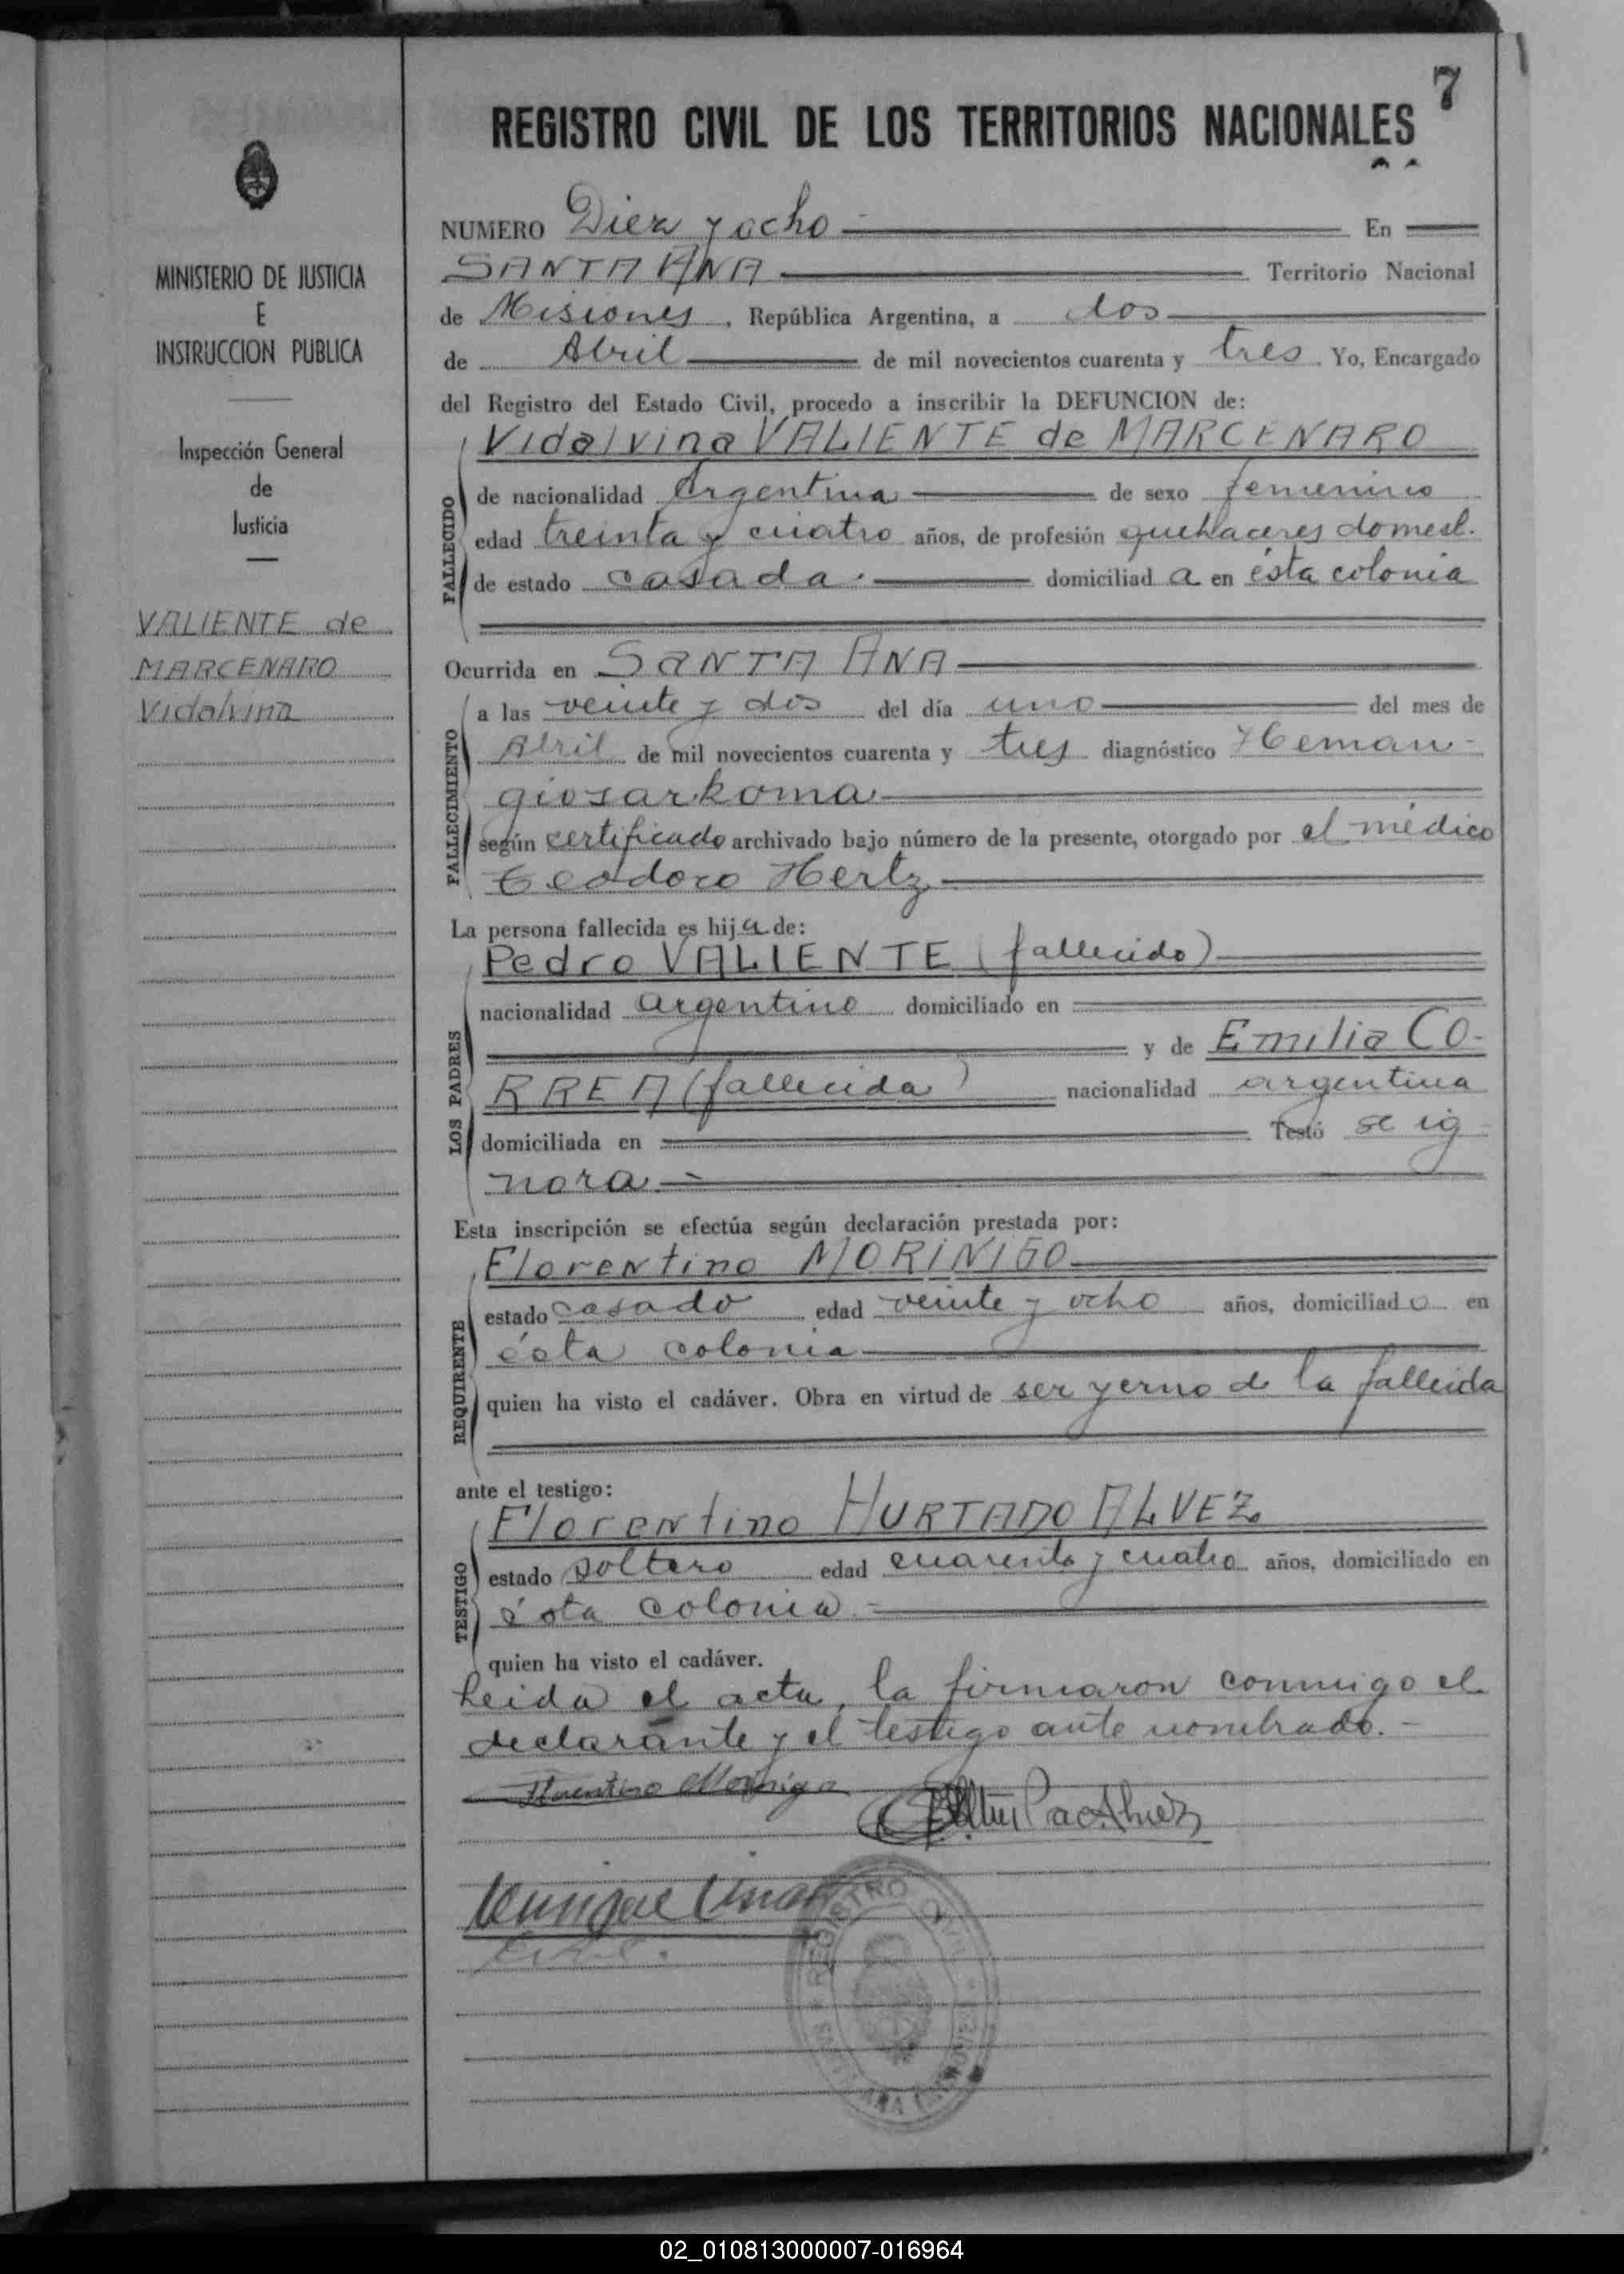 7
REGISTRO CIVIL DE LOS TERRITORIOS NACIONALES
MINISTERIO DE JUSTICIA
E
INSTRUCCION PUBLICA
Inspección General
de
Justicia
VALIENTE de
MARCENARO
Vidalvina
NUMERO Diez y ocho En
SANTA ANA Territorio Nacional
de Misiones, República Argentina, a dos
de Abril de mil novecientos cuarenta y tres. Yo, Encargado
del Registro del Estado Civil, procedo a inscribir la DEFUNCION de:
Vidalvina VALIENTE de MARCENARO
FALLECIDO
de nacionalidad Argentina de sexo femenino
edad treinta y cuatro años, de profesión quehaceres domest.
de estado casada. domiciliad a en ésta colonia
Ocurrida en SANTA ANA
FALLECIMIENTO
a las veinte y dos del día uno del mes de
Abril de mil novecientos cuarenta y tres diagnóstico Heman-
giosarkoma
según certificado archivado bajo número de la presente, otorgado por el médico
Teodoro Hertz
La persona fallecida es hija de:
LOS PADRES
Pedro VALIENTE (fallecido)
nacionalidad argentino domiciliado en
y de Emilia CO-
RREA (fallecida) nacionalidad argentina
domiciliada en Testó se ig-
nora.-
Esta inscripción se efectúa según declaración prestada por:
REQUIRENTE
Florentino MORINIGO
estado casado edad veinte y ocho años, domiciliad o en
ésta colonia
quien ha visto el cadáver. Obra en virtud de ser yerno de la fallecida
ante el testigo:
TESTIGO
Florentino HURTADO ALVEZ
estado soltero edad cuarenta y cuatro años, domiciliado en
ésta colonia.-
quien ha visto el cadáver.
Leida el acta, la firmaron conmigo el
declarante y el testigo ante nombrado.-
Florentino Morinigo
REGISTRO CIVIL
SANTA ANA
02_010813000007-016964